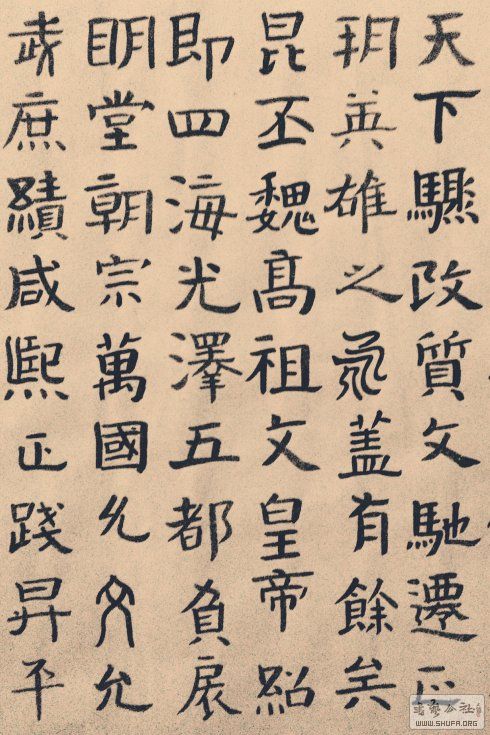 天下驟改質文馳遷正
英雄之蓋有餘矣
昆丕魏髙祖文皇帝紹
即四海光澤五都負扆
眀堂朝宗萬國允文允
武庶績咸熙正踐昇平
WWW.SHUFA.ORG